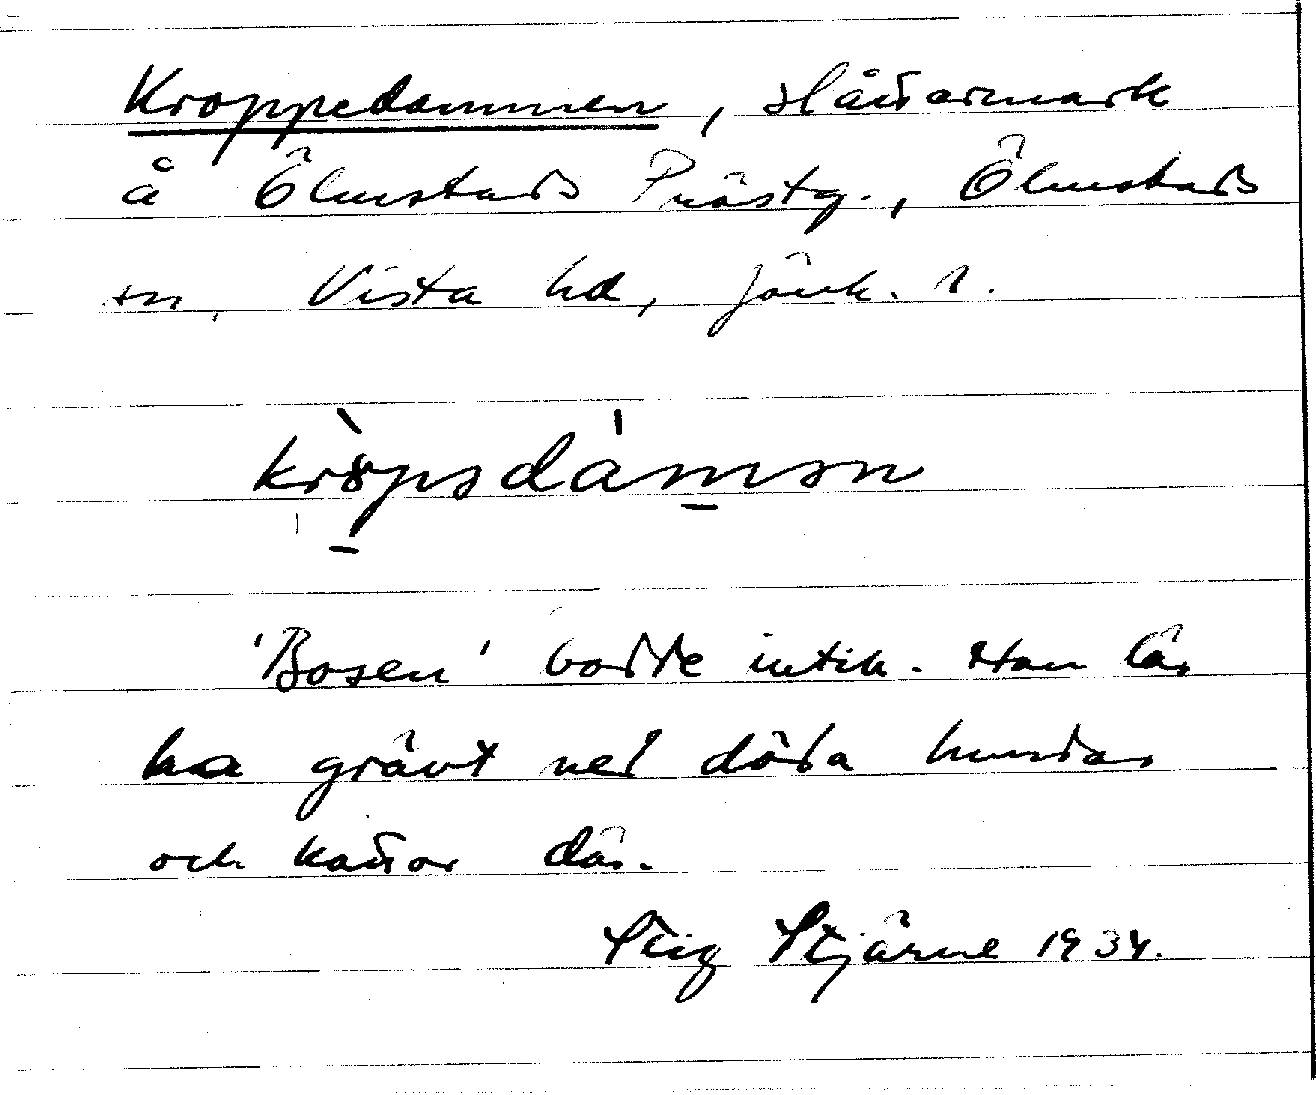 Kroppedammen, slåttermark
å Ölmstads Prästg., Ölmstads
sn, Vista hd, Jönk. l.
'Bosen' bodde intill. Han lär
ha grävt ned döda hundar
och kattor där.
Stig Stjärne 1934.